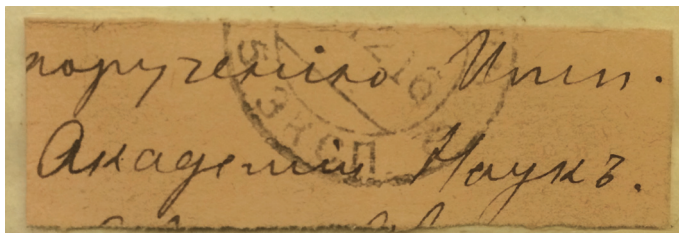 порученію Имп.
Академіи Наукъ.
5 ЭКСП.